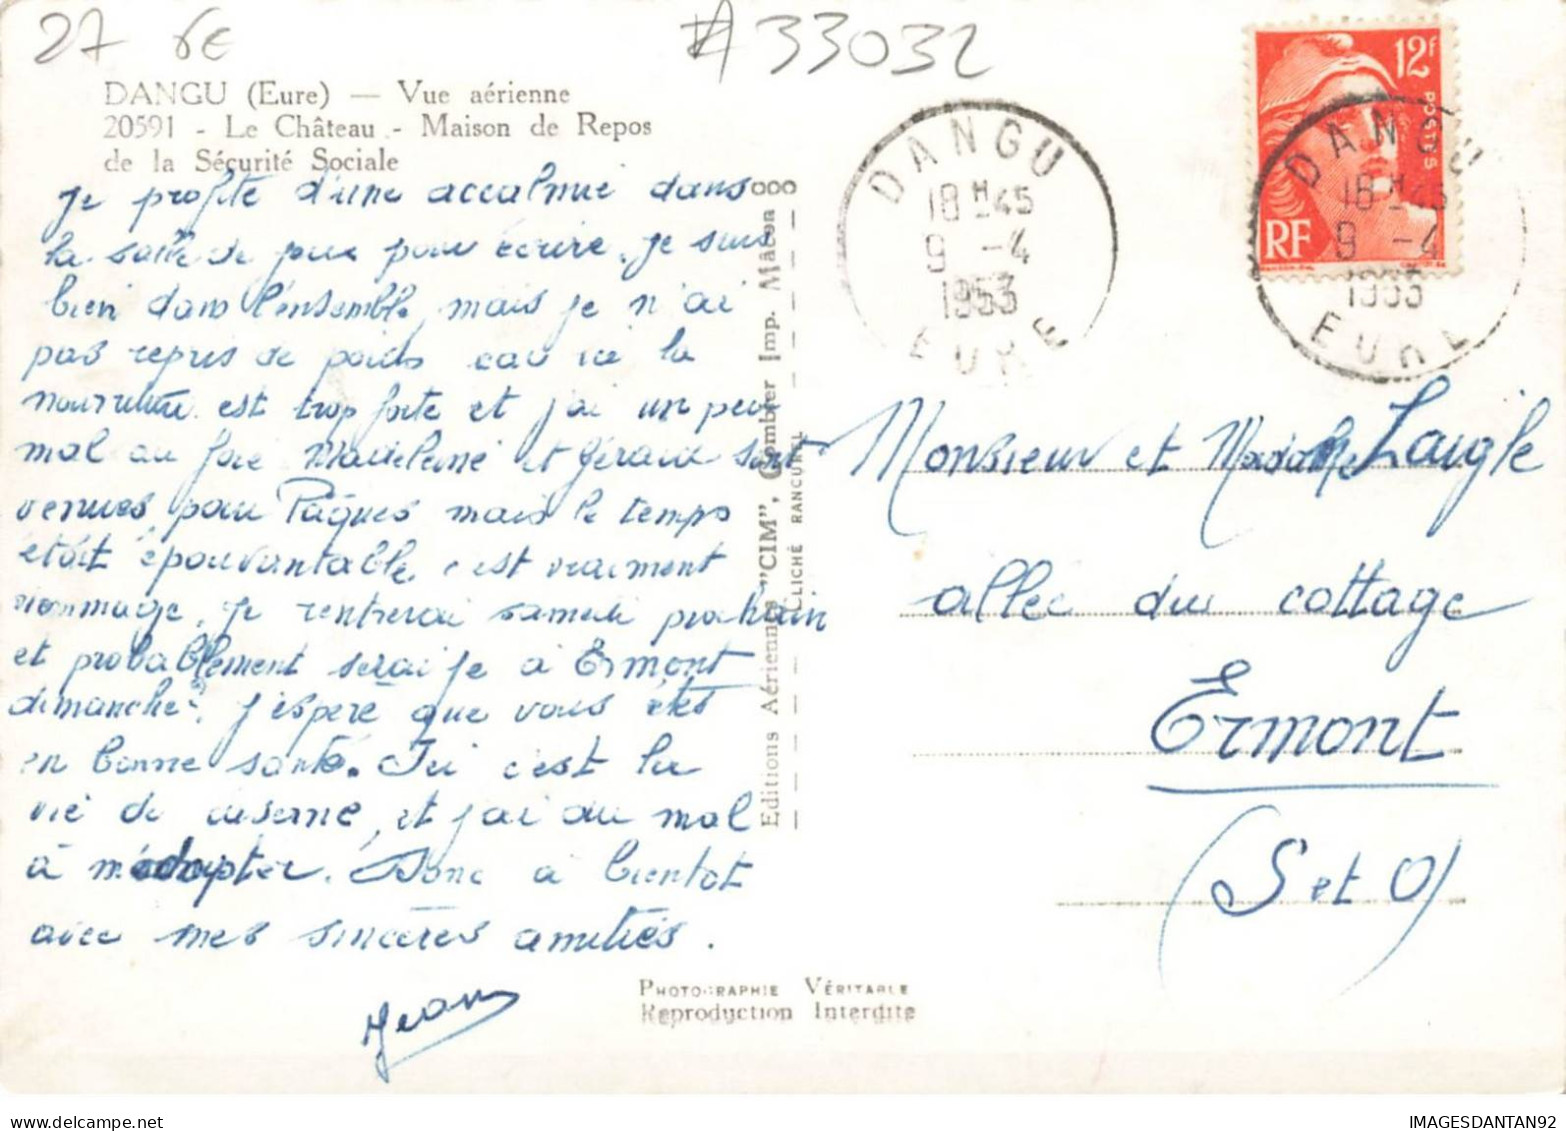 27 6€
#33032
DANGU (Eure) — Vue aérienne
20591 - Le Château - Maison de Repos
de la Sécurité Sociale
je profite d'une accalmie dans
la salle de jeux pour écrire. je suis
bien dans l'ensemble, mais je n'ai
pas repris de poids car ici la
nourriture est trop forte et j'ai un peu
mal au foie Madeleine et Gérard sont
venues pour Pâques mais le temps
était épouvantable, c'est vraiment
dommage. je rentrerai samedi prochain
et probablement serai je à Ermont
dimanche. J'espère que vous êtes
en bonne santé. Ici c'est la
vie de caserne, et j'ai du mal
à m'adapter. Donc à bientot
avec mes sincères amitiés.
Jean
Editions Aériennes "CIM", Combier Imp. Mâcon
CLICHÉ RANCUREL
PHOTOGRAPHIE VÉRITABLE
Reproduction Interdite
DANGU
18H45
9 -4
1953
EURE
12F
POSTES
RF
DANGU
18H45
9 -4
1953
EURE
Monsieur et Madame Laigle
allée du cottage
Ermont
(S et O)
IMAGESDANTAN92